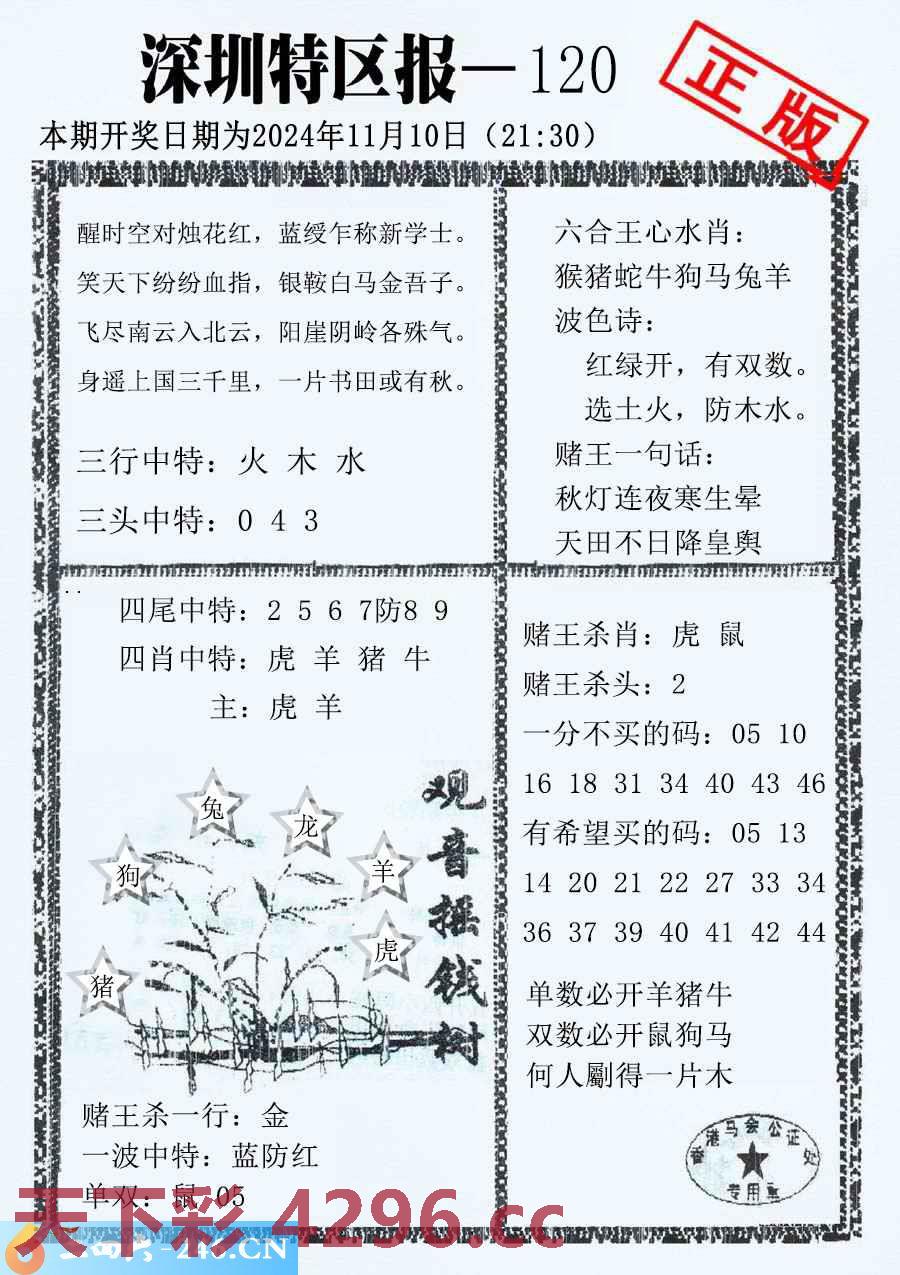 深圳特区报—120
正版
本期开奖日期为2024年11月10日（21:30）
醒时空对烛花红，蓝绶乍称新学士。
笑天下纷纷血指，银鞍白马金吾子。
飞尽南云入北云，阳崖阴岭各殊气。
身遥上国三千里，一片书田或有秋。
三行中特：火 木 水
三头中特：0 4 3
六合王心水肖：
猴猪蛇牛狗马兔羊
波色诗：
红绿开，有双数。
选土火，防木水。
赌王一句话：
秋灯连夜寒生晕
天田不日降皇舆
四尾中特：2 5 6 7防8 9
四肖中特：虎 羊 猪 牛
主：虎 羊
观音摇钱树
兔
龙
狗
羊
虎
猪
赌王杀一行：金
一波中特：蓝防红
单双：鼠 05
赌王杀肖：虎 鼠
赌王杀头：2
一分不买的码：05 10
16 18 31 34 40 43 46
有希望买的码：05 13
14 20 21 22 27 33 34
36 37 39 40 41 42 44
单数必开羊猪牛
双数必开鼠狗马
何人劚得一片木
香港马会公证处
专用章
天下彩 4296.cc
-246.CN